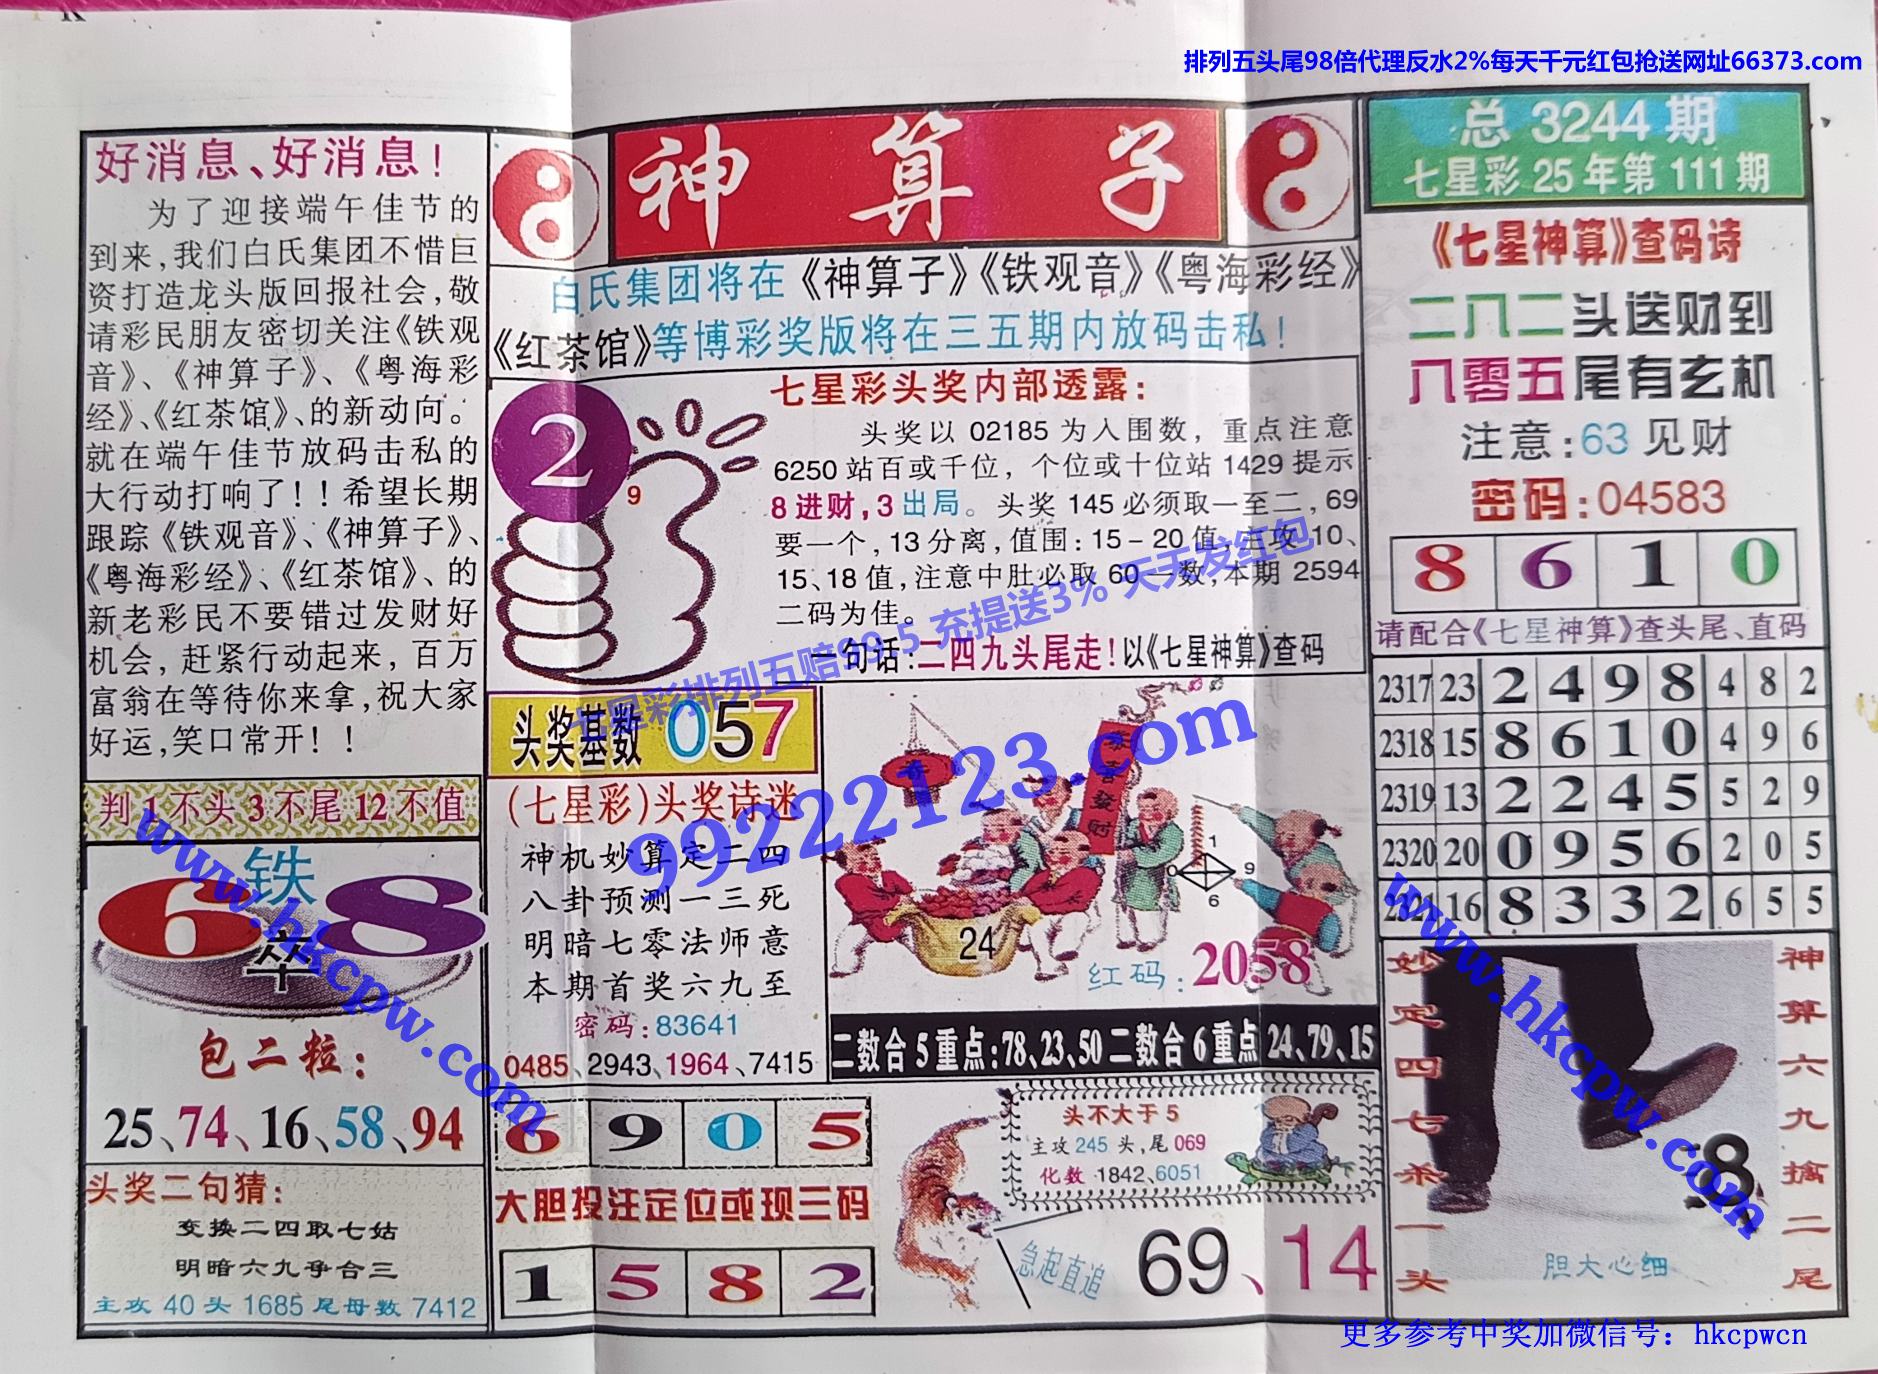 排列五头尾98倍代理反水2%每天千元红包抢送网址66373.com
好消息、好消息！
为了迎接端午佳节的
到来,我们白氏集团不惜巨
资打造龙头版回报社会,敬
请彩民朋友密切关注《铁观
音》、《神算子》、《粤海彩
经》、《红茶馆》、的新动向。
就在端午佳节放码击私的
大行动打响了！！希望长期
跟踪《铁观音》、《神算子》、
《粤海彩经》、《红茶馆》、的
新老彩民不要错过发财好
机会, 赶紧行动起来, 百万
富翁在等待你来拿,祝大家
好运,笑口常开！！
判1不头3不尾12不值
铁
6 8
卒
包二粒：
25、74、16、58、94
头奖二句猜：
变换二四取七姑
明暗六九争合三
主攻 40 头 1685 尾母数 7412
神算子
白氏集团将在《神算子》《铁观音》《粤海彩经》
《红茶馆》等博彩奖版将在三五期内放码击私！
2
9
七星彩头奖内部透露：
头奖以 02185 为入围数，重点注意
6250 站百或千位，个位或十位站 1429 提示
8 进财, 3 出局。头奖 145 必须取一至二, 69
要一个, 13 分离, 值围: 15-20 值, 主攻 10、
15、18 值, 注意中肚必取 60 一数, 本期 2594
二码为佳。
一句话:二四九头尾走!以《七星神算》查码
七星彩排列五赔99.5 充提送3% 天天发红包
头奖基数 057
(七星彩)头奖诗迷
神机妙算定二四
八卦预测一三死
明暗七零法师意
本期首奖六九至
密码:83641
0485、2943、1964、7415
恭喜发财
24
1
9
6
红码: 2058
二数合5重点:78、23、50二数合6重点24、79、15
6 9 0 5
大胆投注定位或现三码
1 5 8 2
头不大于 5
主攻 245 头, 尾 069
化数 1842、6051
急起直追
69、14
总 3244 期
七星彩 25 年第 111 期
《七星神算》查码诗
二八二头送财到
八零五尾有玄机
注意:63 见财
密码:04583
8 6 1 0
请配合《七星神算》查头尾、直码
2317 23 2 4 9 8 4 8 2
2318 15 8 6 1 0 4 9 6
2319 13 2 2 4 5 5 2 9
2320 20 0 9 5 6 2 0 5
2321 16 8 3 3 2 6 5 5
妙定四七杀一头
神算六九擒二尾
8
胆大心细
99222123.com
www.hkcpw.com
www.hkcpw.com
更多参考中奖加微信号: hkcpwcn